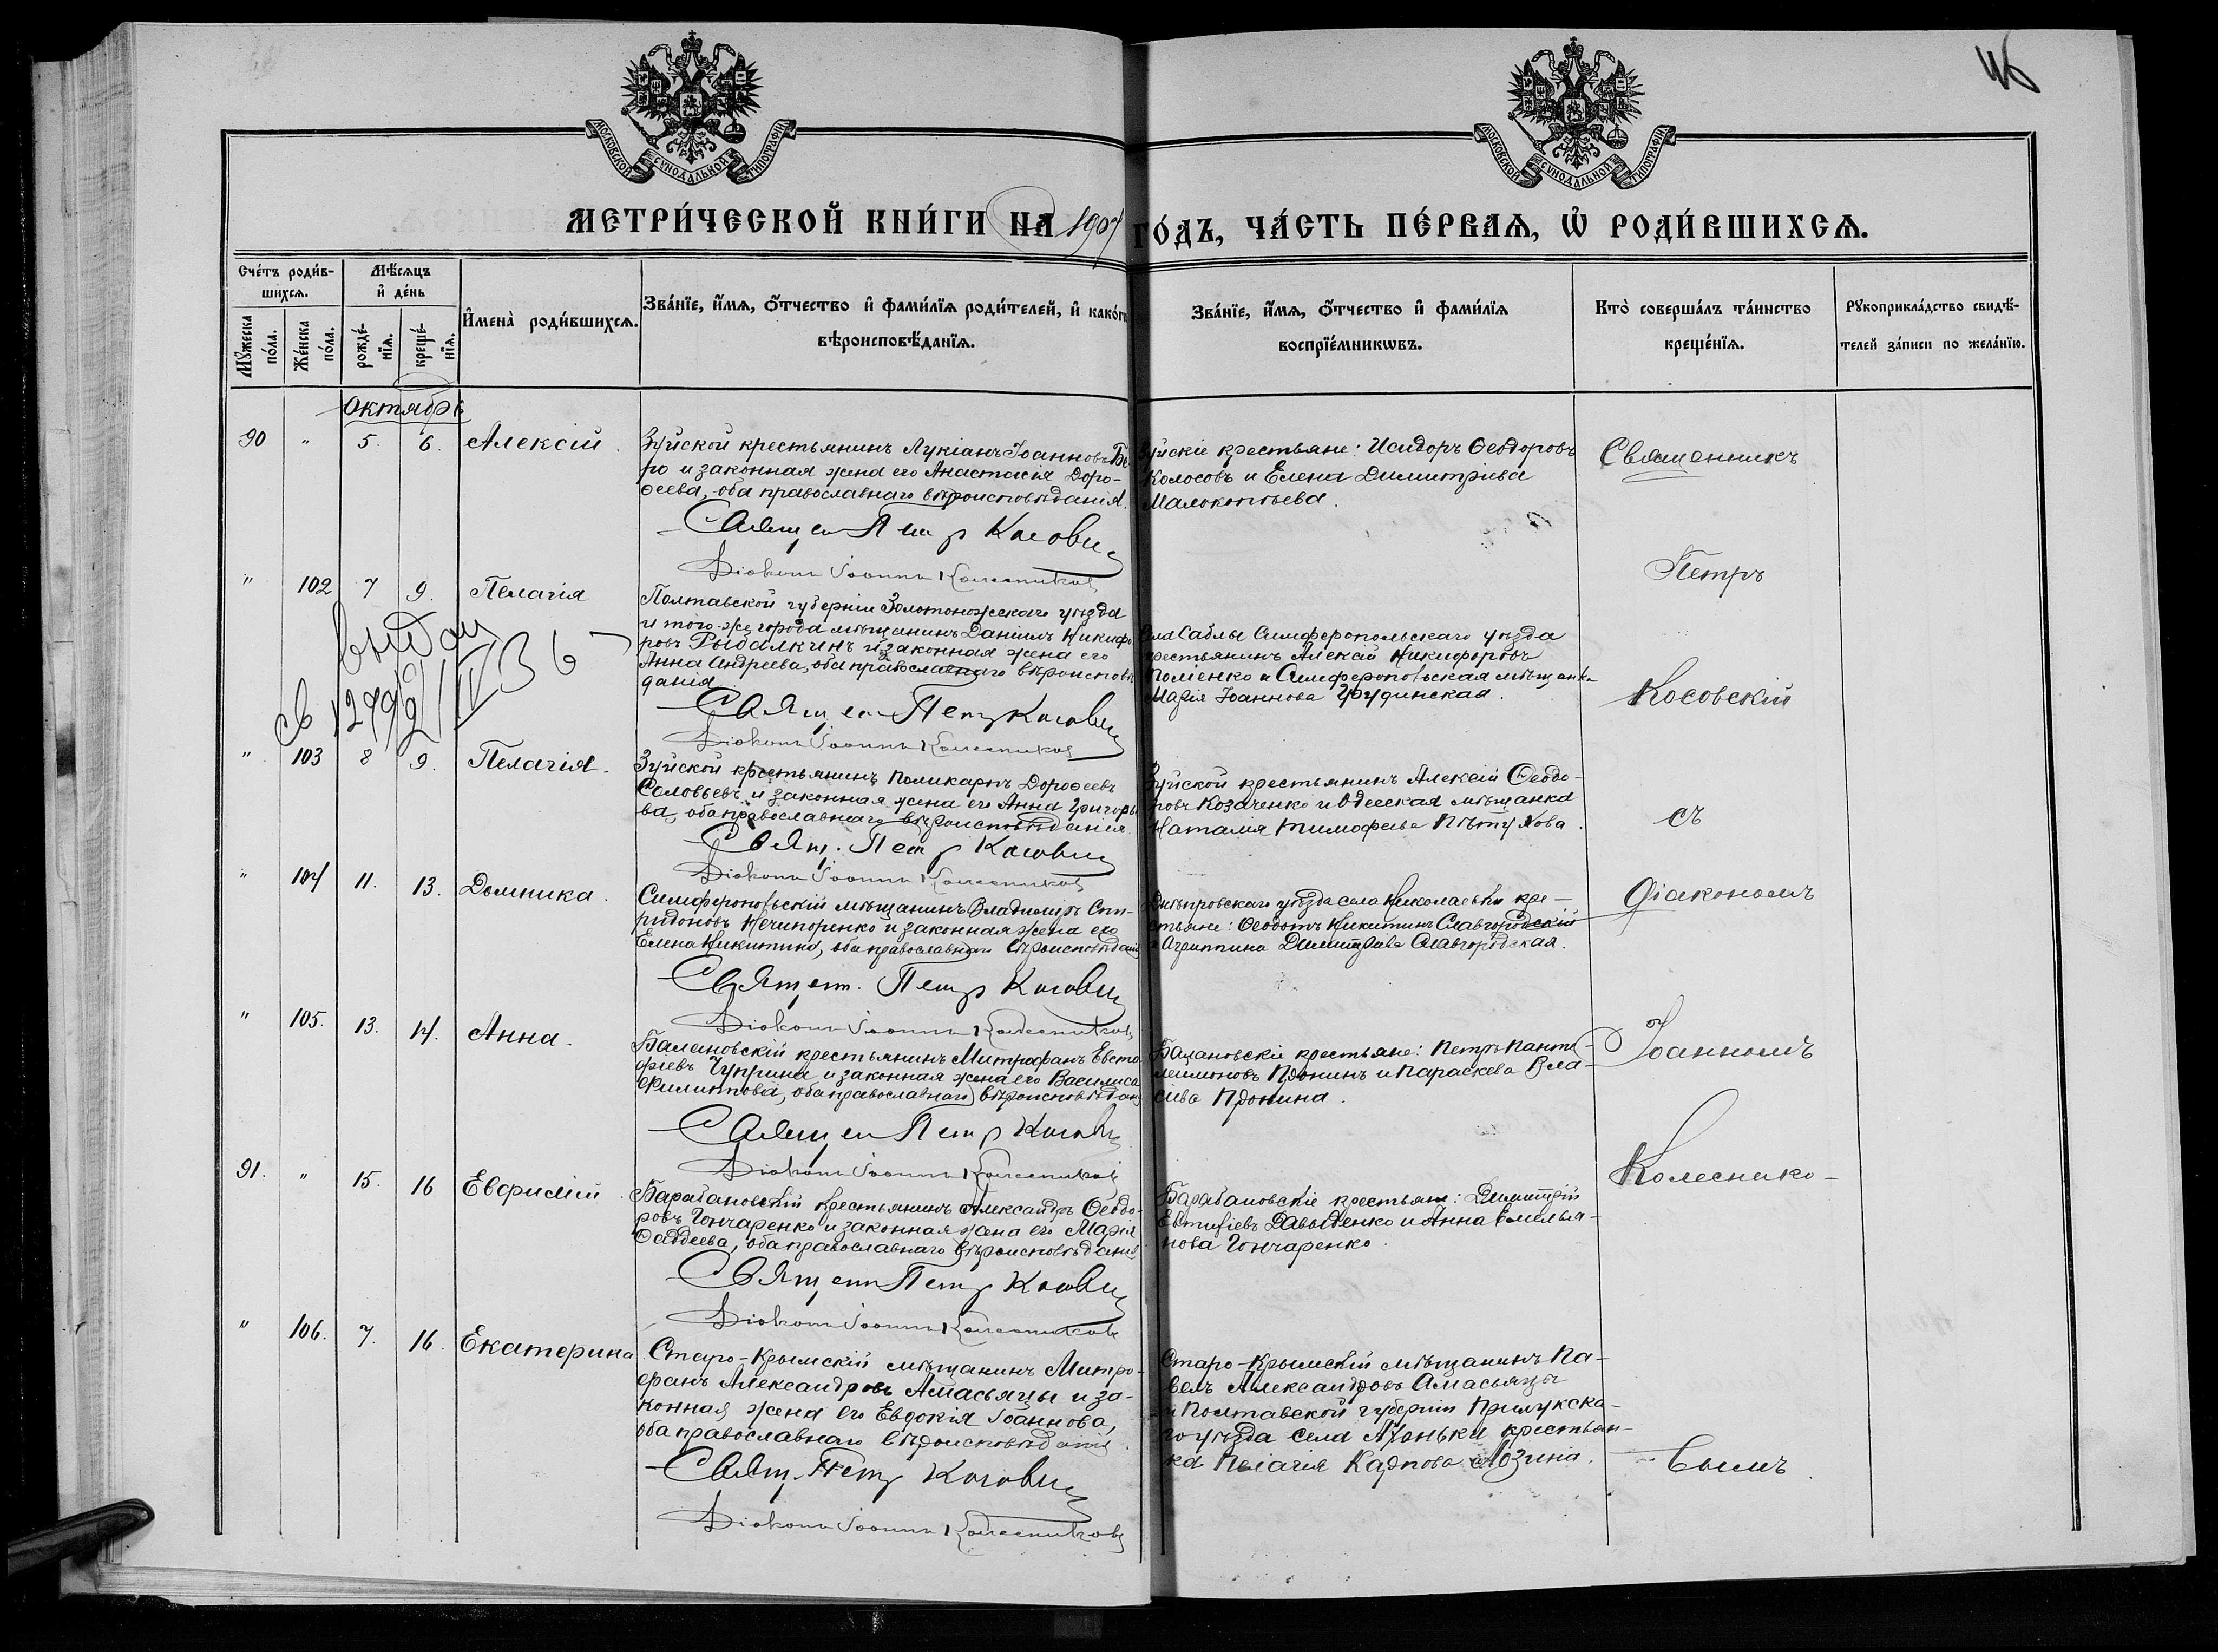 46
МОСКОВСКОЙ СУНОДАЛЬНОЙ ТИПОГРАФІИ
МОСКОВСКОЙ СУНОДАЛЬНОЙ ТИПОГРАФІИ
МЕТРИ́ЧЕСКОЙ КНИ́ГИ НА 1907 ГО́ДЪ, ЧА́СТЬ ПЕ́РВАѦ, Ѡ҆ РОДИ́ВШИХСѦ.
Сче́тъ роди́в-
шихсѧ.
Мꙋ́жеска по́ла.
Же́нска по́ла.
Мѣ́сѧцъ
и҆ де́нь
рожде́-
нїѧ.
креще́-
нїѧ.
И҆мена̀ роди́вшихсѧ.
Зва́нїе, и҆́мѧ, ѻ҆́тчество и҆ фами́лїѧ роди́телей, и҆ како́гѡ
вѣроисповѣ́данїѧ.
Зва́нїе, и҆́мѧ, ѻ҆́тчество и҆ фами́лїѧ
воспрїе́мникѡвъ.
Кто̀ соверша́лъ та́инство
креще́нїѧ.
Рꙋкоприкла́дство свидѣ́-
телей за́писи по жела́нїю.
Октябрь
90 " 5. 6. Алексій.
Зуйской крестьянинъ Лукіанъ Іоанновъ Бе
ро и законная жена его Анастасія Доро-
ѳеева, оба православнаго вѣроисповѣданія.
Священ Петр Косовск
Діаконъ Іоаннъ Колесниковъ
Зуйскіе крестьяне: Исидоръ Ѳеодоровъ
Колосовъ и Елена Димитріева
Малокоптьева.
Священникъ
Петръ
Косовскій
съ
діакономъ
Іоанномъ
Колеснико-
вымъ
" 102 7 9. Пелагія
выдан
св 1279
Полтавской губерніи Золотоношскаго уѣзда
и того-же города мѣщанинъ Даніилъ Никифо
ровъ Рыбалкинъ и законная жена его
Анна Андреева, оба православнаго вѣроисповѣ
данія
Священ Петр Косовск
Діаконъ Іоаннъ Колесниковъ
Села Саблы Симферопольскаго уѣзда
крестьянинъ Алексій Никифоровъ
и Симферопольская мѣщанка
Марія Іоаннова Грудинская.
" 103 8 9. Пелагія.
Зуйской крестьянинъ Поликарпъ Дороѳеевъ
Соловьевъ и законная жена его Анна Григорье
ва, оба православнаго вѣроисповѣданія.
Свящ. Петр Косовск
Діаконъ Іоаннъ Колесниковъ
Зуйской крестьянинъ Алексій Ѳеодо-
ровъ Козаченко и Одесская мѣщанка
Наталія Тимофеева Пѣтухова.
" 104 11. 13. Домника.
Симферопольскій мѣщанинъ Владиміръ Спи-
ридоновъ Нечипоренко и законная жена его
Елена Никитина, оба православнаго вѣроисповѣданія
Священ. Петр Косовск
Діаконъ Іоаннъ Колесниковъ
Днѣпровскаго уѣзда села Николаевки кре-
стьяне: Ѳеодотъ Никитинъ Славгородскій
и Агриппина Димитріева Славгородская.
" 105. 13. 14. Анна.
Балановскій крестьянинъ Митрофанъ Евста
фіевъ Чуприна и законная жена его Василиса
Филиппова, оба православнаго вѣроисповѣданія
Священ Петр Косовск
Діаконъ Іоаннъ Колесниковъ
Балановскіе крестьяне: Петръ Панте-
леимоновъ Пронинъ и Параскева Вла-
сіева Пронина.
91. " 15. 16 Евфимій.
Барабановскій крестьянинъ Александръ Ѳеодо-
ровъ Гончаренко и законная жена его Марія
Ѳаддеева, оба православнаго вѣроисповѣданія
Священ Петр Косовск
Діаконъ Іоаннъ Колесниковъ
Барабановскіе крестьяне: Димитрій
Евтихіевъ Давыденко и Анна Емелья-
нова Гончаренко.
" 106. 7. 16. Екатерина
Старо-Крымскій мѣщанинъ Митро-
фанъ Александровъ Амасьянцы и за-
конная жена его Евдокія Іоаннова,
оба православнаго вѣроисповѣданія.
Свящ. Петр Косовск
Діаконъ Іоаннъ Колесниковъ
Старо-Крымскій мѣщанинъ Па-
велъ Александровъ Амасьянцы
и Полтавской губерніи Прилукска-
го уѣзда села крестьян-
ка Пелагія Карпова Лозина.